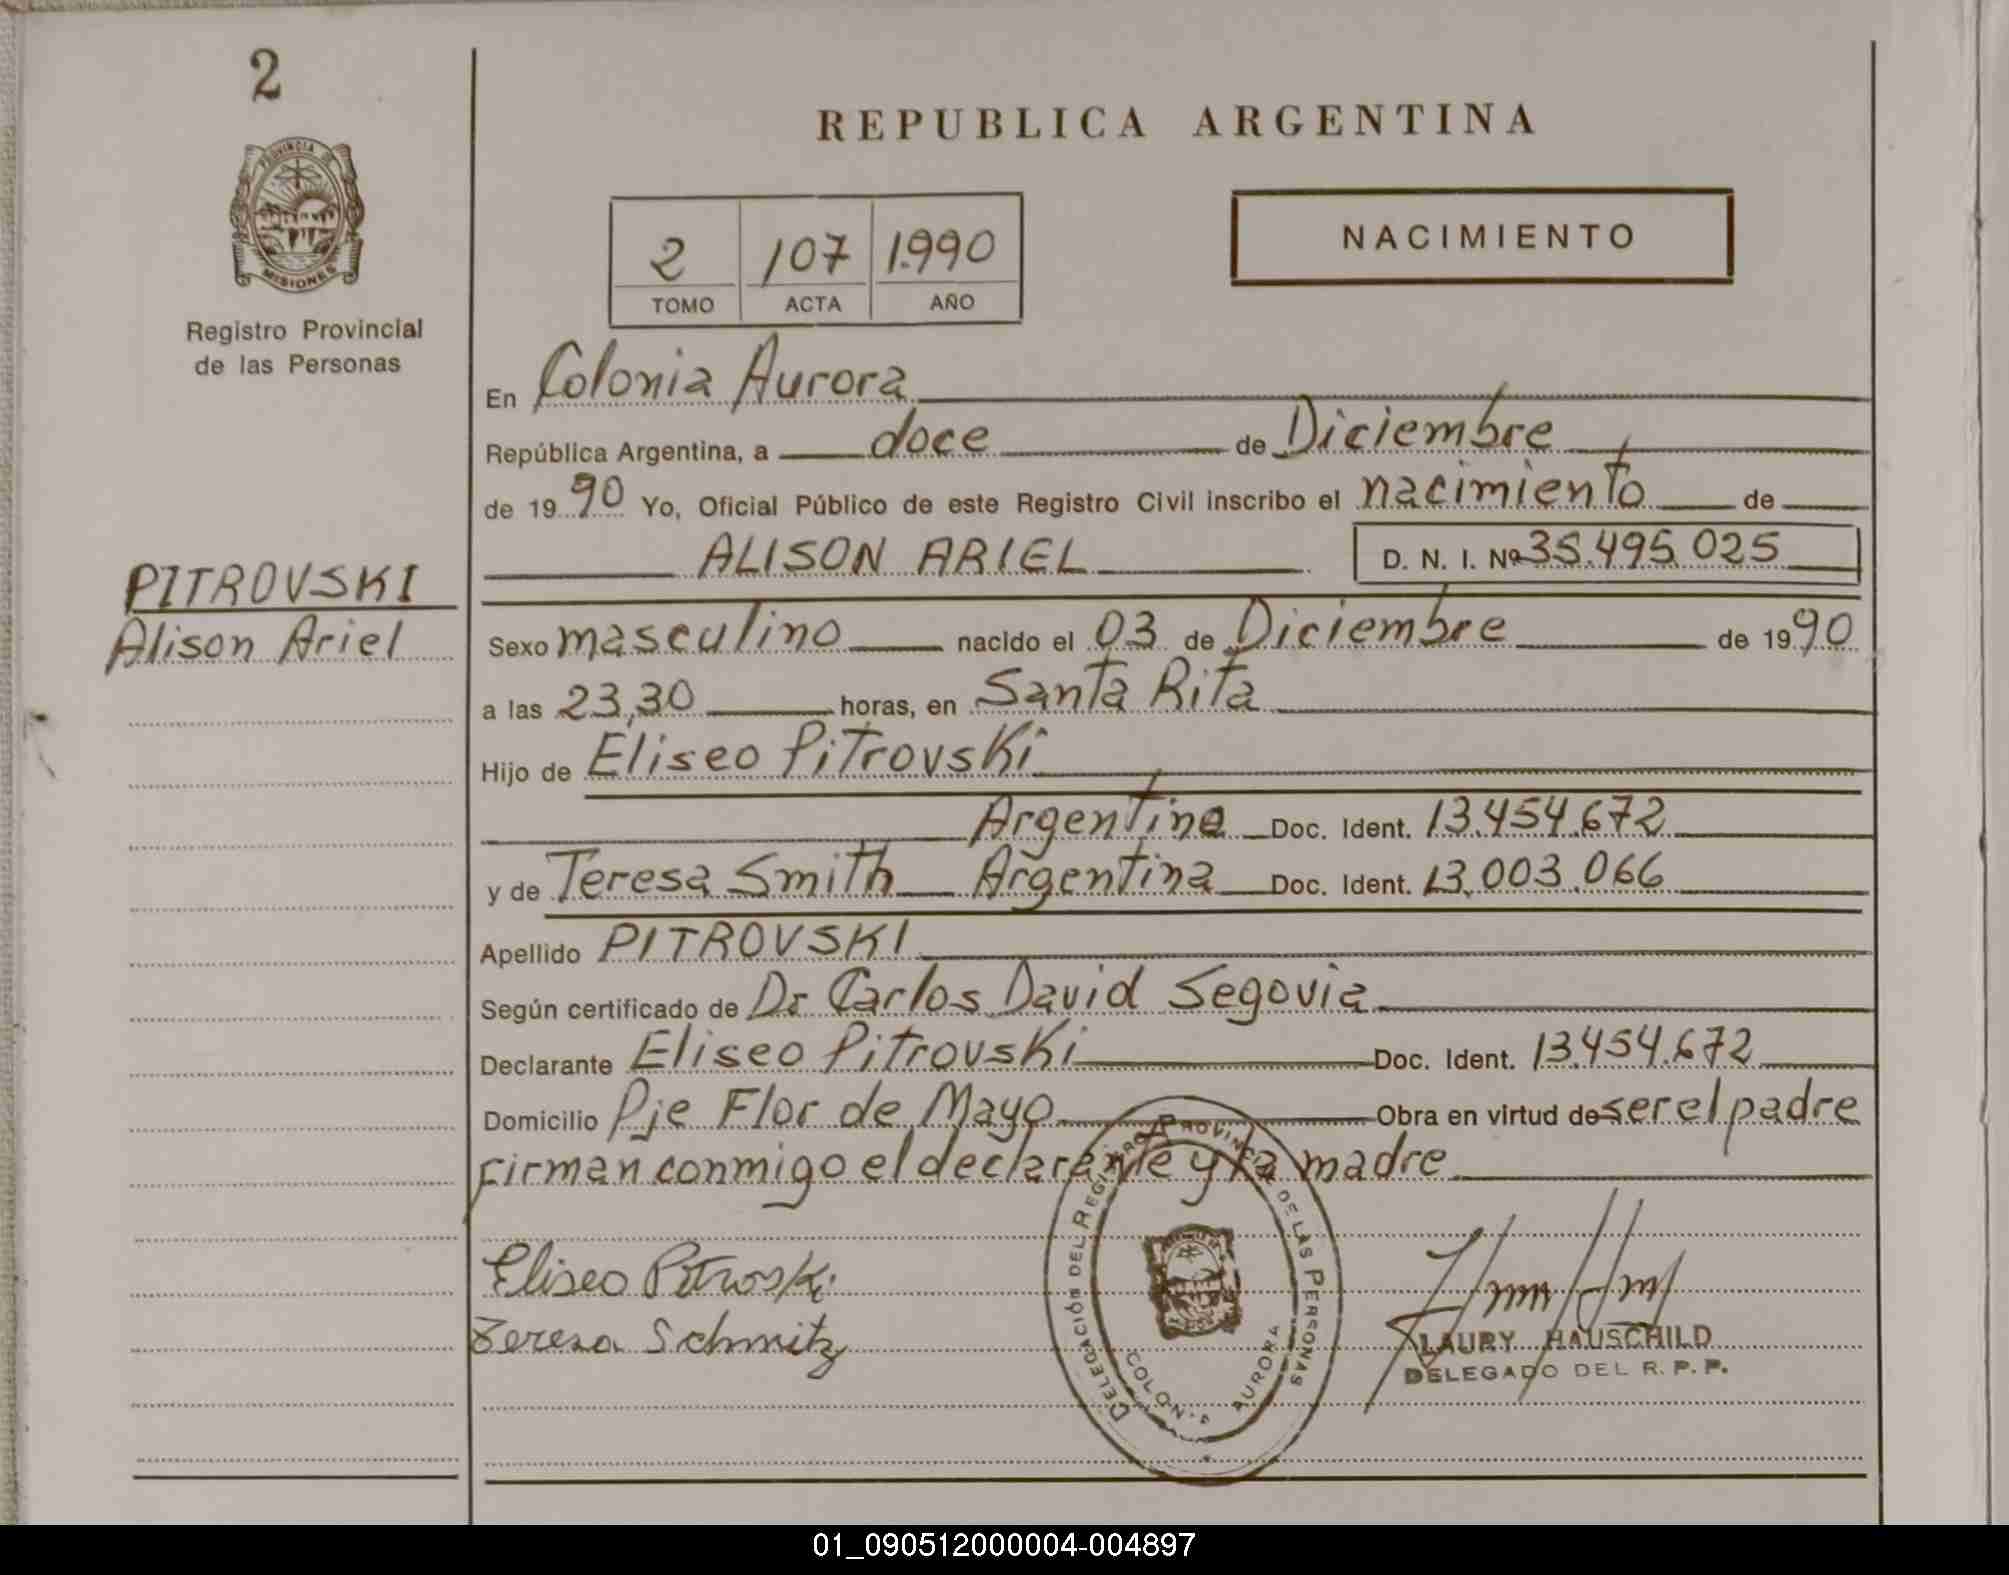 2
PROVINCIA DE
MISIONES
Registro Provincial
de las Personas
PITROVSKI
Alison Ariel
REPUBLICA ARGENTINA
2 107 1.990
TOMO ACTA AÑO
NACIMIENTO
En Colonia Aurora
República Argentina, a doce de Diciembre
de 1990 Yo, Oficial Público de este Registro Civil inscribo el nacimiento de
ALISON ARIEL D. N. I. Nº 35.495.025
Sexo masculino nacido el 03 de Diciembre de 1990
a las 23,30 horas, en Santa Rita
Hijo de Eliseo Pitrovski
Argentino Doc. Ident. 13.454.672
y de Teresa Smith Argentina Doc. Ident. 13.003.066
Apellido PITROVSKI
Según certificado de Dr Carlos David Segovia
Declarante Eliseo Pitrovski Doc. Ident. 13.454.672
Domicilio Pje Flor de Mayo Obra en virtud de ser el padre
firman conmigo el declarante y la madre
Eliseo Pitroski
Teresa Schmitz
DELEGACIÓN DEL REGISTRO PROVINCIAL DE LAS PERSONAS
COLONIA AURORA
LAURY HAUSCHILD
DELEGADO DEL R. P. P.
01_090512000004-004897